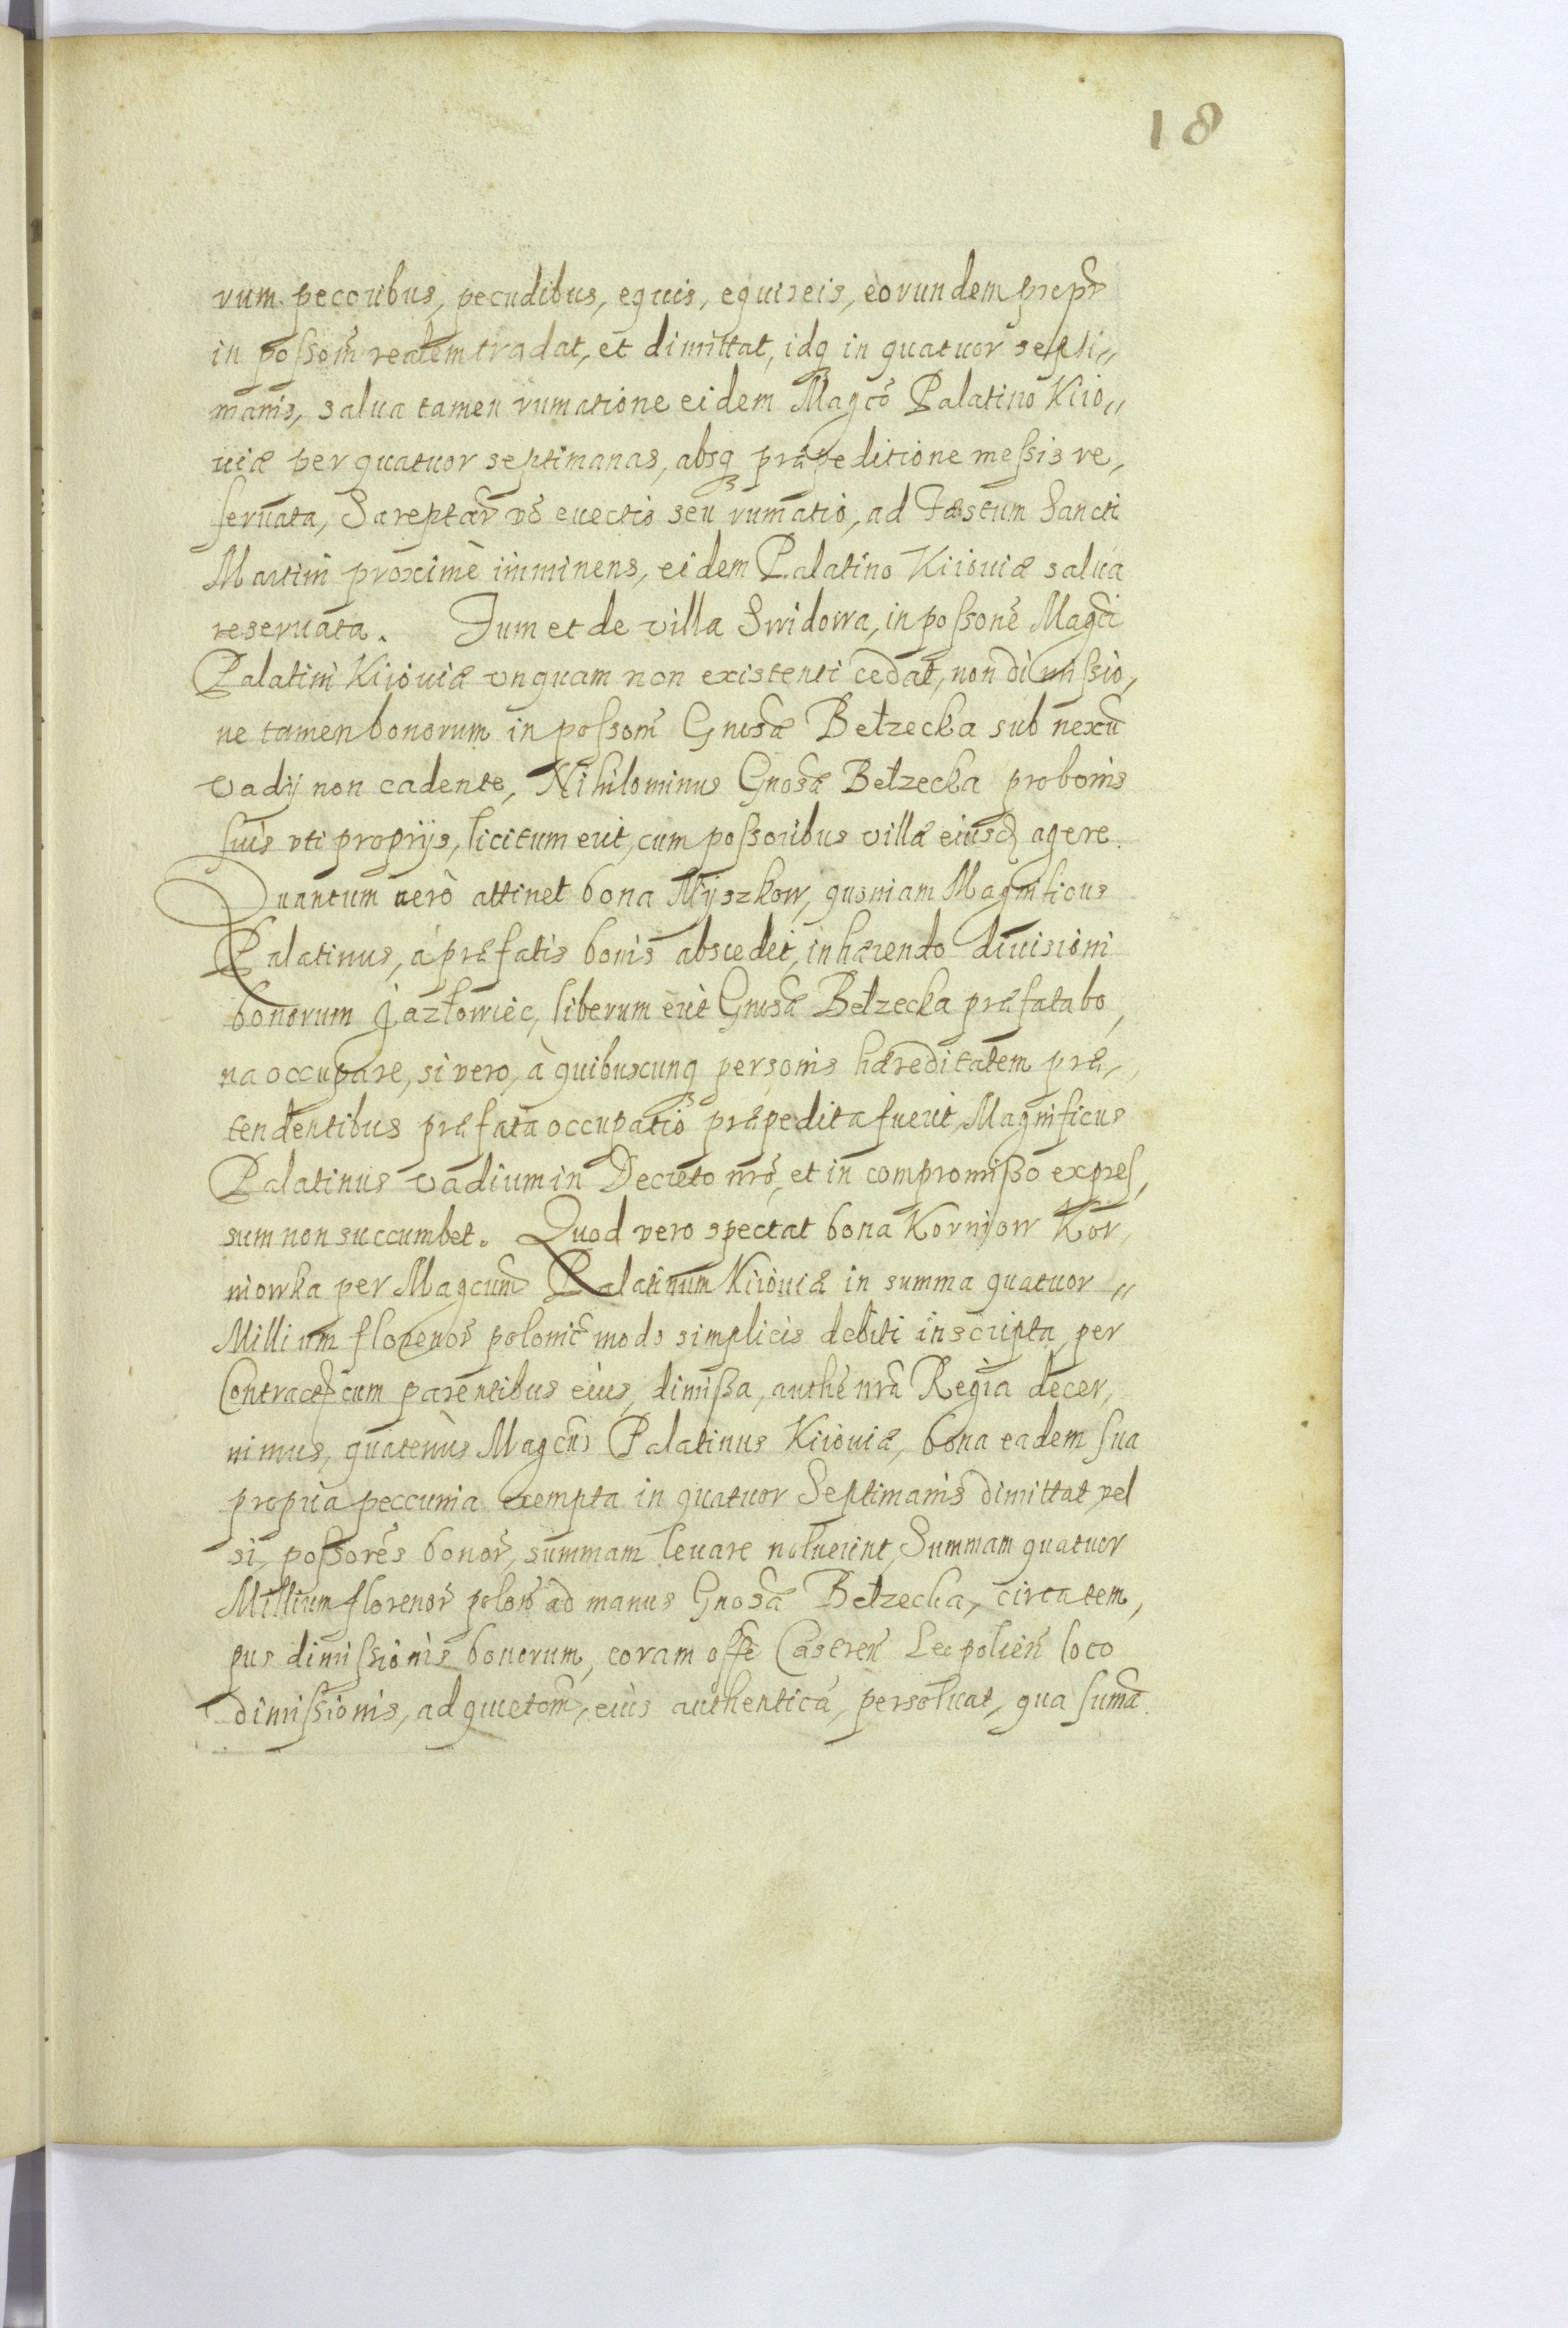 18
rum pecoribus, pecudibus, equis, equireis, eorundem prepr̃
in possom̃ realem tradat, et dimittat, idq in quatuor septi„
manis, salua tamen rumatione eidem Magcõ Palatino Kiio„
uiæ per quatuor septimanas, absq præpeditione messis re,
seruata, Sareptar̃ võ euectio seu rumatio, ad Fæstum Sancti
Martini proximè imminens, eidem Palatino Kiiouiæ salua
reseruata. Tum et de villa Swidowa, in possonẽ Magci
Palatini Kiiouiæ vnquam non existenti cedat, non dimissio,
ne tamen bonorum in possom̃ Gnosæ Bełzecka sub nexu
vadij non cadente, Nihilominus Gnosæ Bełzecka pro bonis
suis vti proprijs, licitum erit, cum possoribus villæ eiusd agere.
Quantum uerò attinet bona Myszkow, quoniam Magnificus
Palatinus, á præfatis bonis abscedet, inhærendo diuisioni
bonorum Jazłowiec, liberum erit Gnosæ Bełzecka præfata bo,
na occupare, si vero, à quibuscunq personis hæreditatem præ„
tendentibus præfata occupatio præpedita fuerit, Magnificus
Palatinus vadium in Decreto nrõ, et in compromisso expres,
sum non succumbet. Quod vero spectat bona Kornijow Kor,
niowka per Magcum Palatinum Kiiouiæ in summa quatuor „
Millium florenor̃ polonic̃ modo simplicis debiti inscripta, per
Contract cum parentibus eius, dimissa, authẽ nrã Regia decer,
nimus, quatenùs Magcus Palatinus Kiiouiæ, bona eadem sua
propria peccunia exempta in quatuor Septimanis dimittat, vel
si possorẽs bonor̃, summam leuare noluerint, Summam quatuor
Millium florenor̃ polon̄ ad manus Gnosæ Bełzecka, circa tem,
pus dimissionis bonorum, coram offo Castren̄ Leopolien̄ loco
dimissionis, ad quietom̃, eius authentica, persoluat, qua suma